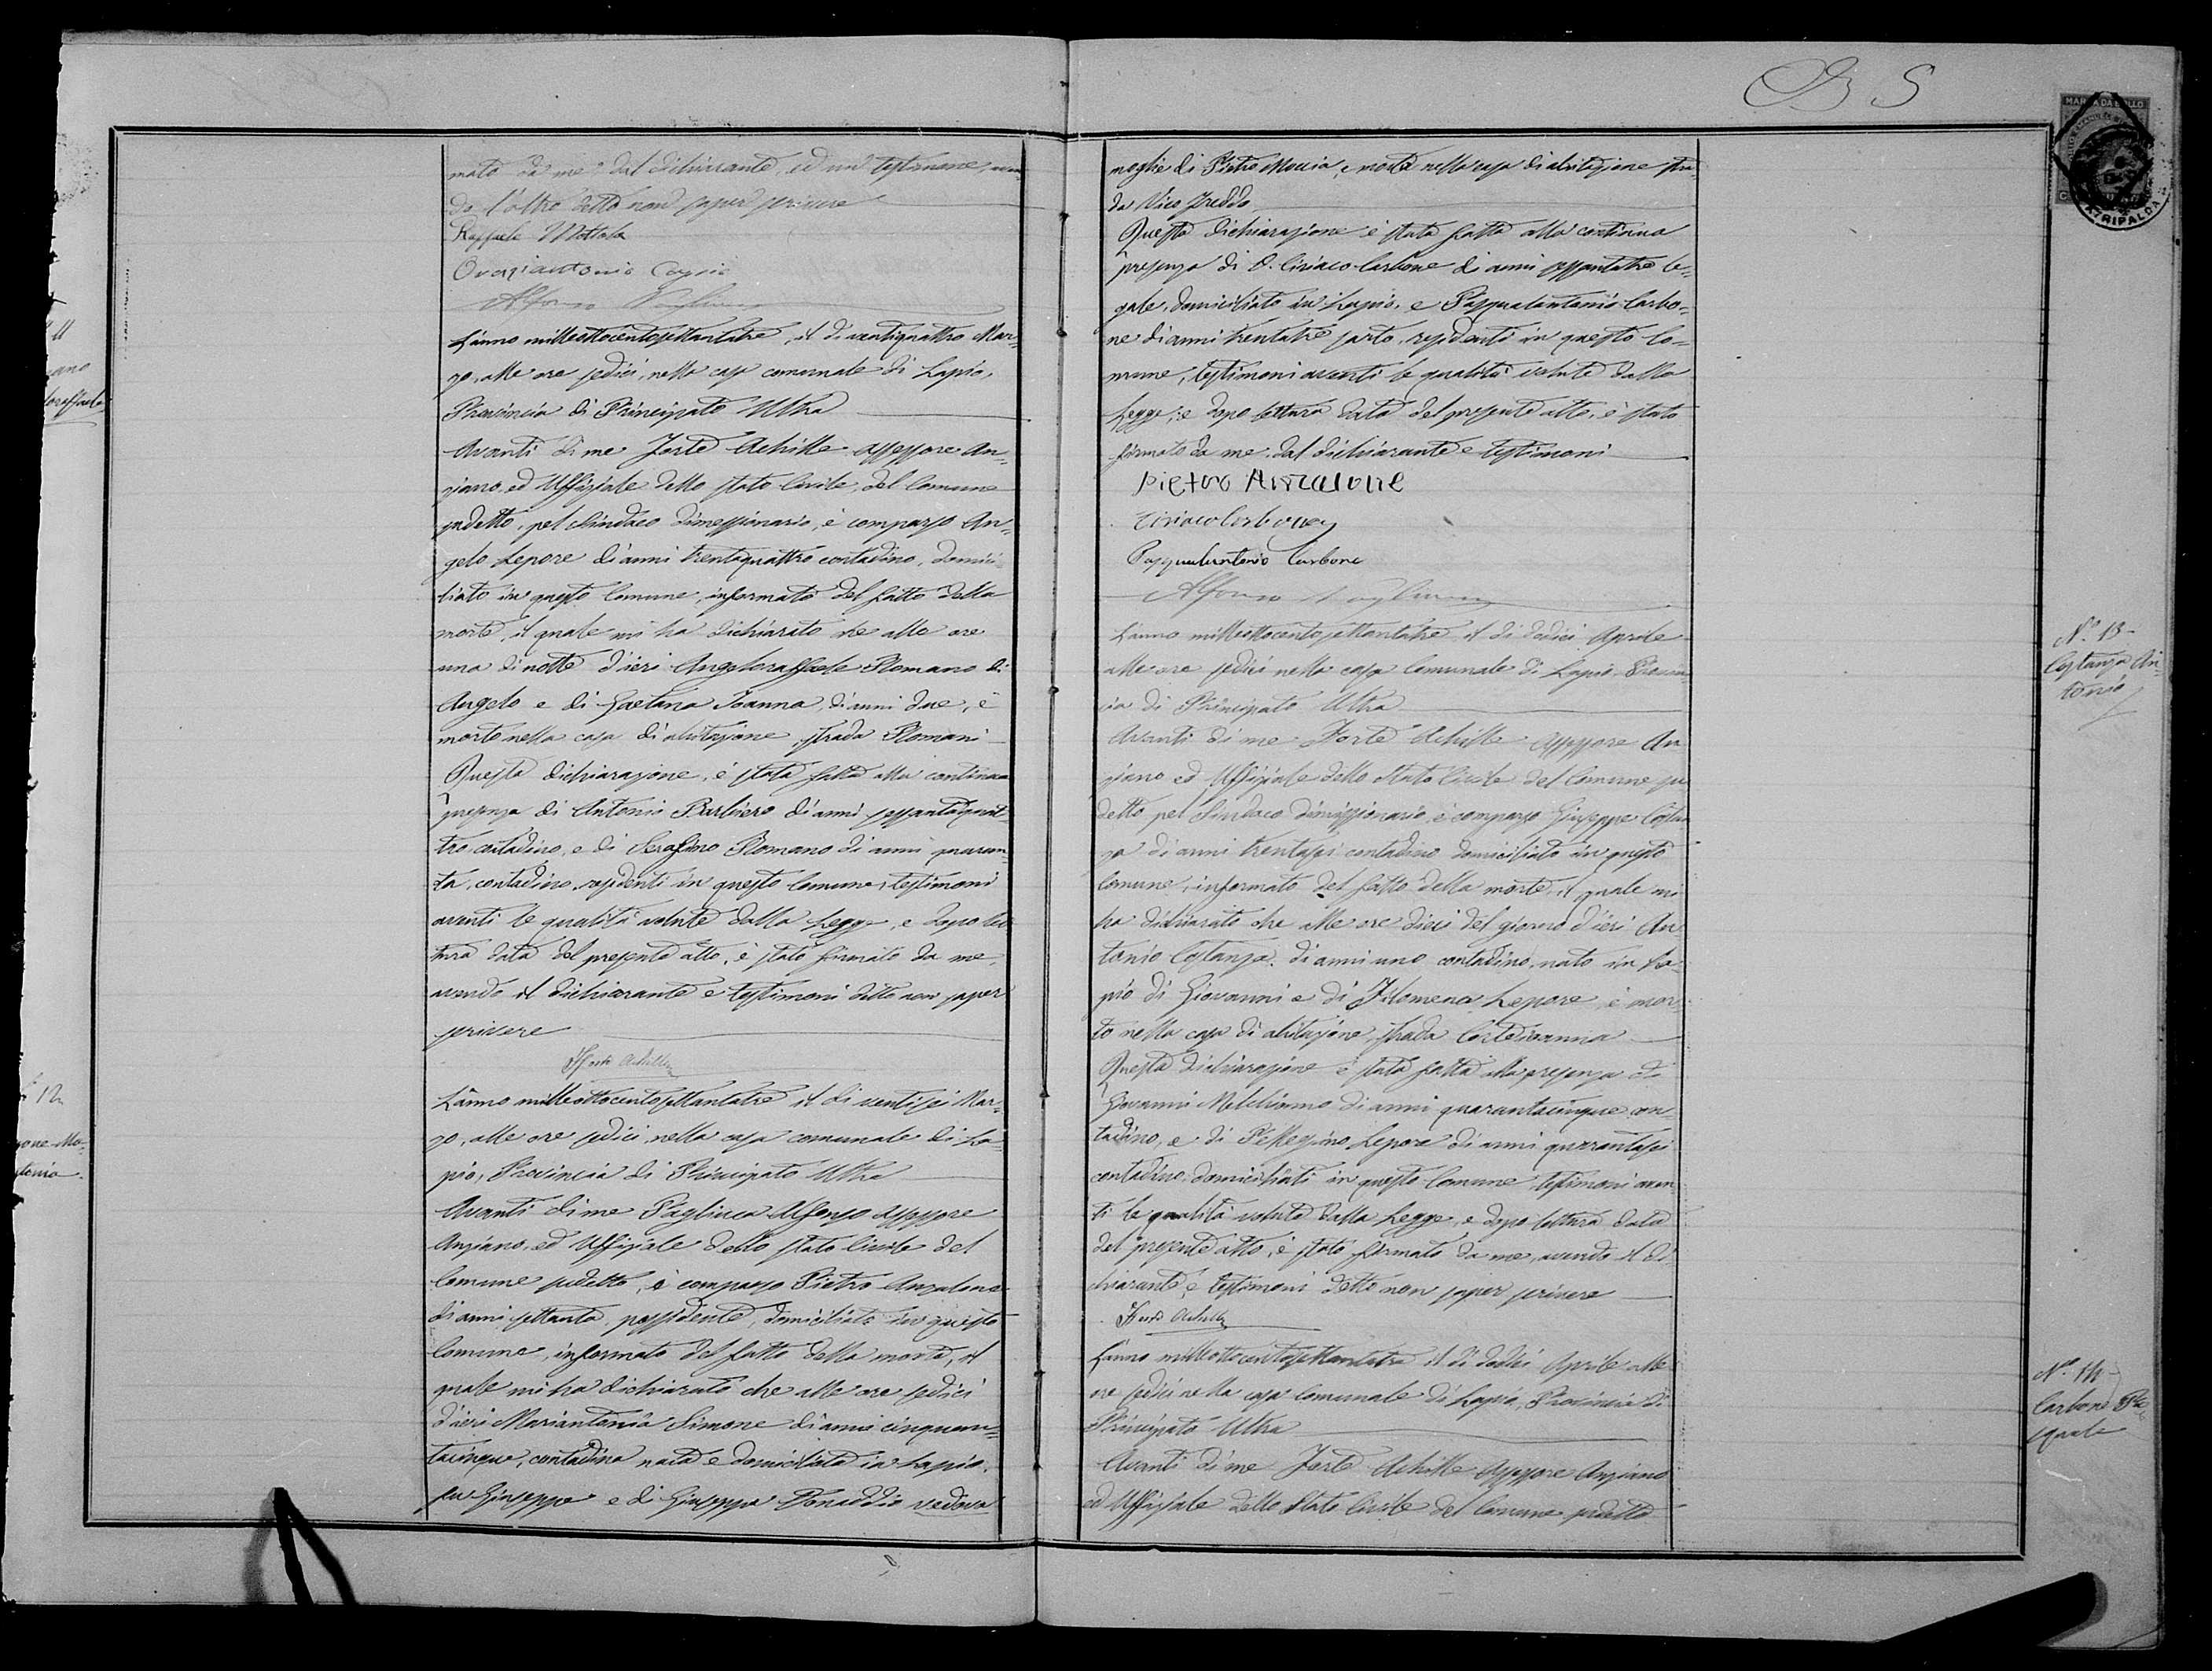 mato da me dal dichiarante, ed un testimone, aven=
do l'altro detto non saper scrivere
Raffaele Mottola
Oraziantonio Caprio
Alfonso Pagliuca
L'anno milleottocentosettantatre, il dì ventiquattro Mar=
zo, alle ore sedici, nella casa comunale di Lapio,
Provincia di Principato Ultra
Avanti di me Forte Achille Assessore An=
ziano, ed Uffiziale dello stato Civile, del Comune
sudetto, pel Sindaco dimessionario, è comparso An=
gelo Lepore di anni trentaquattro contadino, domici=
liato in questo Comune, informato del fatto della
morte, il quale mi ha dichiarato che alle ore
una di notte d'ieri Angeloraffaele Romano di
Angelo e di Gaetana Ioanna di anni due, è
morto nella casa di abitazione, strada Romani
Questa dichiarazione, è stata fatta alla continua
presenza di Antonio Barbiero di anni sessantaquat=
tro contadino, e di Serafino Romano di anni quaran=
ta, contadino, residenti in questo Comune, testimoni
aventi le qualità volute dalla Legge, e dopo let
tura data del presente atto, è stato firmato da me,
avendo il dichiarante e testimoni detto non saper
scrivere
Forte Achille
L'anno milleottocentosettantatre il dì ventisei Mar=
zo, alle ore sedici, nella casa comunale di La=
pio, Provincia di Principato Ultra
Avanti di me Pagliuca Alfonso Assessore
Anziano, ed Uffiziale dello stato Civile del
Comune sudetto, è comparso Pietro Anzalone
di anni settanta, possidente, domiciliato in questo
Comune, informato del fatto della morte, il
quale mi ha dichiarato che alle ore sedici
d'ieri Mariantonia Simone di anni cinquan=
tacinque, contadina nata e domiciliata in Lapio,
fu Giuseppe e di Giuseppa vedova
11
12
B S
MARCA DA BOLLO
ATRIPALDA
moglie di Pietro Moccia, è morta nella casa di abitazione stra=
da Vico freddo
Questa dichiarazione è stata fatta alla continua
presenza di D. Ciriaco Carbone di anni sessantatre le=
gale, domiciliato in Lapio, e Pasqualantonio Carbo=
ne di anni trentatre sarto, residenti in questo Co=
mune, testimoni aventi le qualità volute dalla
Legge; e dopo lettura data del presente atto, è stato
firmato da me, dal dichiarante e testimoni
Pietro Anzalone
Ciriaco Carbone
Pasqualantonio Carbone
Alfonso Pagliuca
N.º 13=
Costanza An=
tonio
L'anno milleottocentosettantatre il dì dodici Aprile
alle ore sedici nella casa Comunale di Lapio Provin=
cia di Principato Ultra
Avanti di me Forte Achille Assessore An
ziano ed Uffiziale dello Stato Civile del Comune su
detto pel Sindaco dimissionario, è comparso Giuseppe Costan
za di anni trentasei contadino domiciliato in questo
Comune, informato del fatto della morte, il quale mi
ha dichiarato che alle ore dieci del giorno d'ieri An
tonio Costanza, di anni uno contadino, nato in La=
pio di Giovanni e di Filomena Lepore è mor=
to nella casa di abitazione, strada Corteioanna
Questa dichiarazione è stata fatta alla presenza di
Giovanni Melchionno di anni quarantacinque con=
tadino, e di Pellegrino Lepore di anni quarantasei
contadino domiciliati in questo Comune testimoni aven
ti le qualità volute dalla Legge, e dopo lettura data
del presente atto, è stato firmato da me, avendo il di
chiarante, e testimoni detto non saper scrivere
Forte Achille
N.º 14
Carbone Pas
quale
L'anno milleottocentosettantatre il dì dodici Aprile alle
ore sedici nella casa Comunale di Lapio, Provincia di
Principato Ultra
Avanti di me Forte Achille Assessore Anziano
ed Uffiziale dello Stato Civile del Comune sudetto